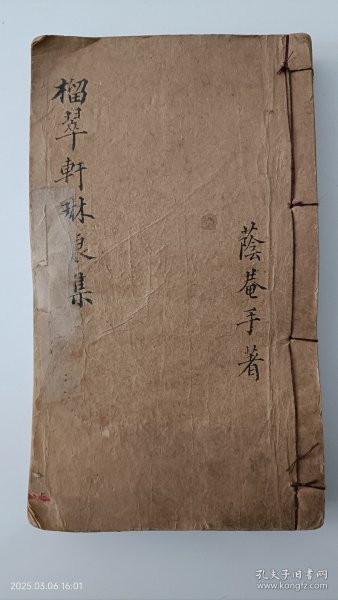 榴翠軒琳琅集
蔭菴手著
2025.03.06 16:01
孔夫子旧书网
www.kongfz.com